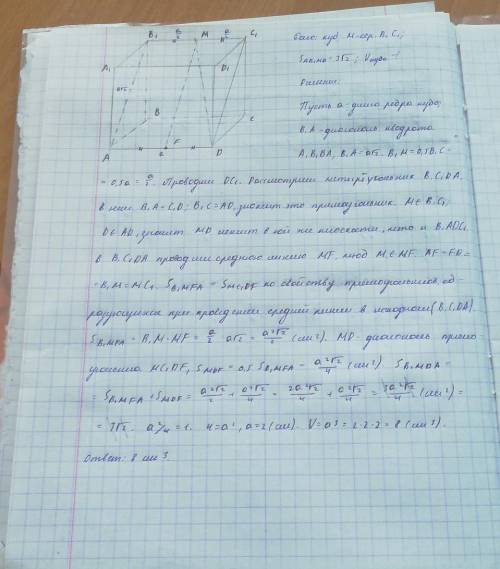 B₁ a/2 M a/2 C₁
A₁ D₁
a√2
B C
A F D
a
Дано: куб, M-сер. B₁C₁;
S_AB₁MD = 3√2; Vкуба - ?
Решение:
Пусть a - длина ребра куба;
B₁A - диагональ квадрата
A₁B₁BA, B₁A = a√2. B₁M = 0,5B₁C₁ =
= 0,5a = a/2. Проводим DC₁. Рассмотрим четырёхугольник B₁C₁DA.
В нём B₁A = C₁D; B₁C₁ = AD, значит это прямоугольник. M ∈ B₁C₁,
D ∈ AD, значит MD лежит в той же плоскости, что и B₁ADC₁.
В B₁C₁DA проводим среднюю линию MF, AF = FD =
= B₁M = MC₁. S_B₁MFA = S_MC₁DF по свойству прямоугольников, об-
разующихся при проведении средней линии в исходном (B₁C₁DA)
S_B₁MFA = B₁M · MF = a/2 · a√2 = a²√2/2 (см²). MD - диагональ прямо-
угольника MC₁DF, S_MDF = 0,5 S_B₁MFA = a²√2/4 (см²). S_B₁MDA =
= S_B₁MFA + S_MDF = a²√2/2 + a²√2/4 = 2a²√2/4 + a²√2/4 = 3a²√2/4 (см²) =
= 3√2. a²/4 = 1. 4 = a², a = 2 (см). V = a³ = 2·2·2 = 8 (см³).
Ответ: 8 см³.